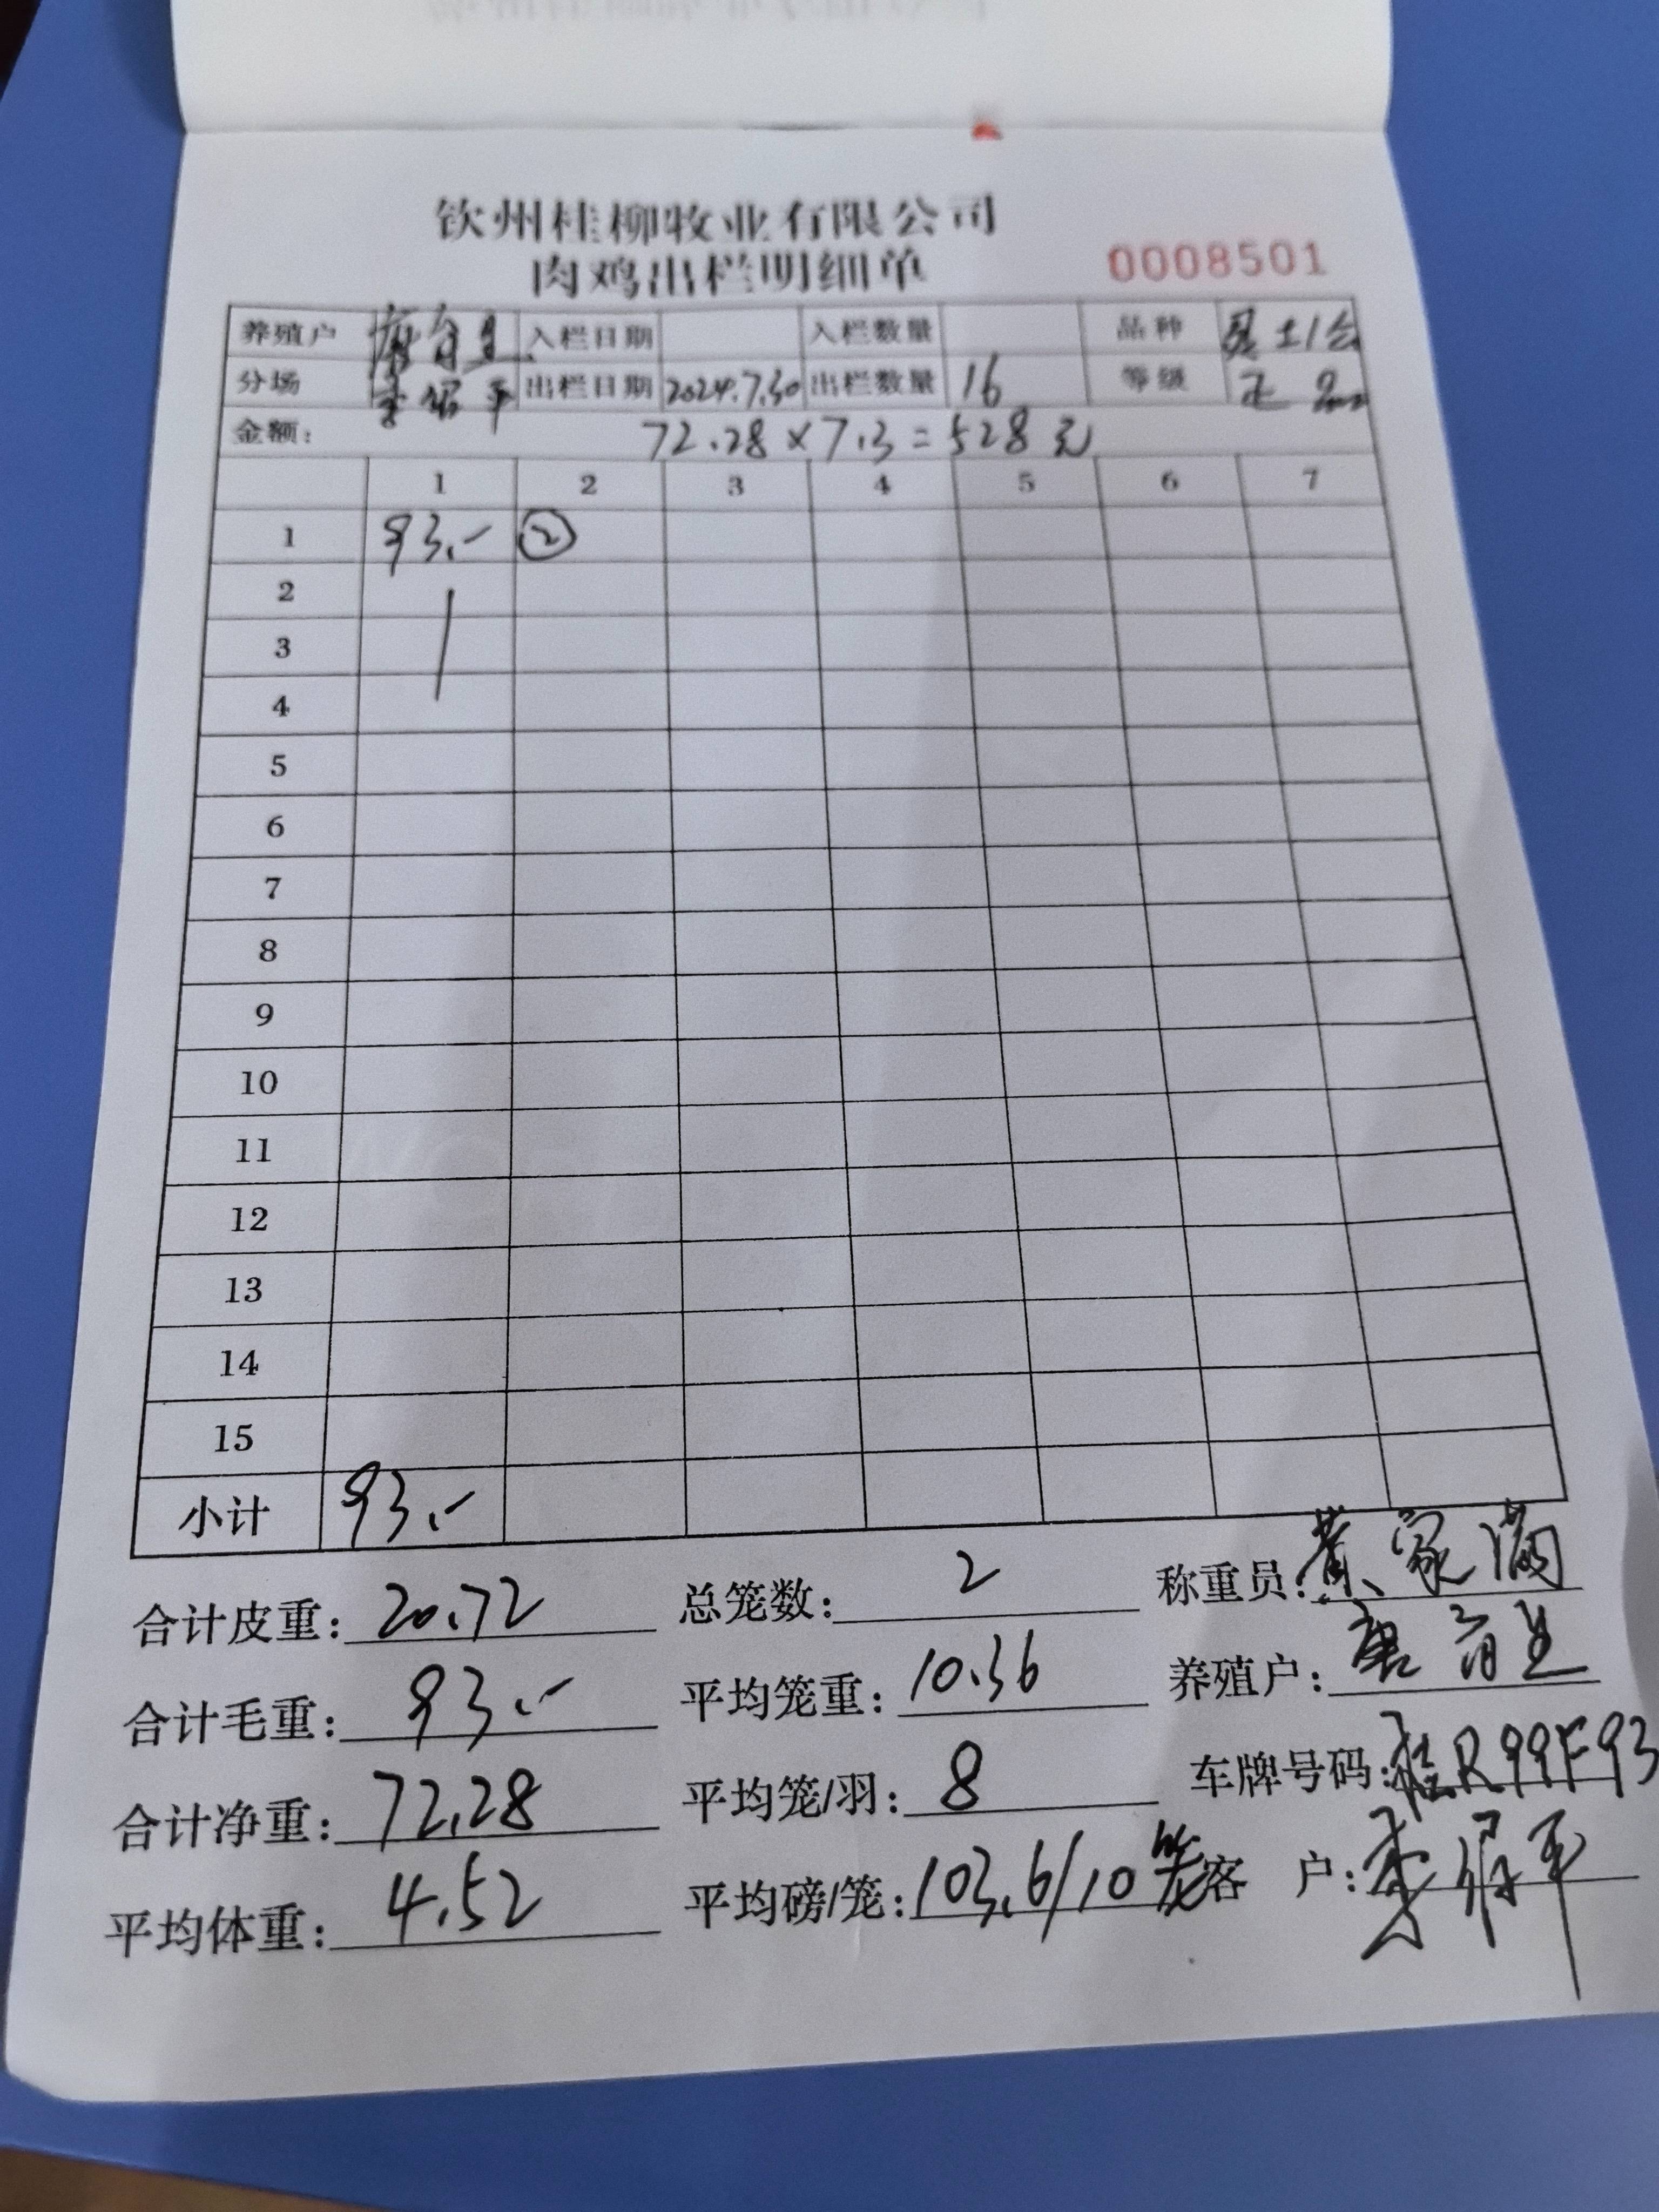 钦州桂柳牧业有限公司
肉鸡出栏明细单
0008501
养殖户 入栏日期 入栏数量 品种 土1号
分场 出栏日期 2024.7.30 出栏数量 16 等级 正
金额: 72.28×7.3=528元
1 2 3 4 5 6 7
1 93.- ②
2
3
4
5
6
7
8
9
10
11
12
13
14
15
小计 93.-
合计皮重: 20.72 总笼数: 2 称重员: 黄家满
合计毛重: 93.- 平均笼重: 10.36 养殖户:
合计净重: 72.28 平均笼/羽: 8 车牌号码: 桂R99F93
平均体重: 4.52 平均磅/笼: 103.6/10笼 客 户: 李